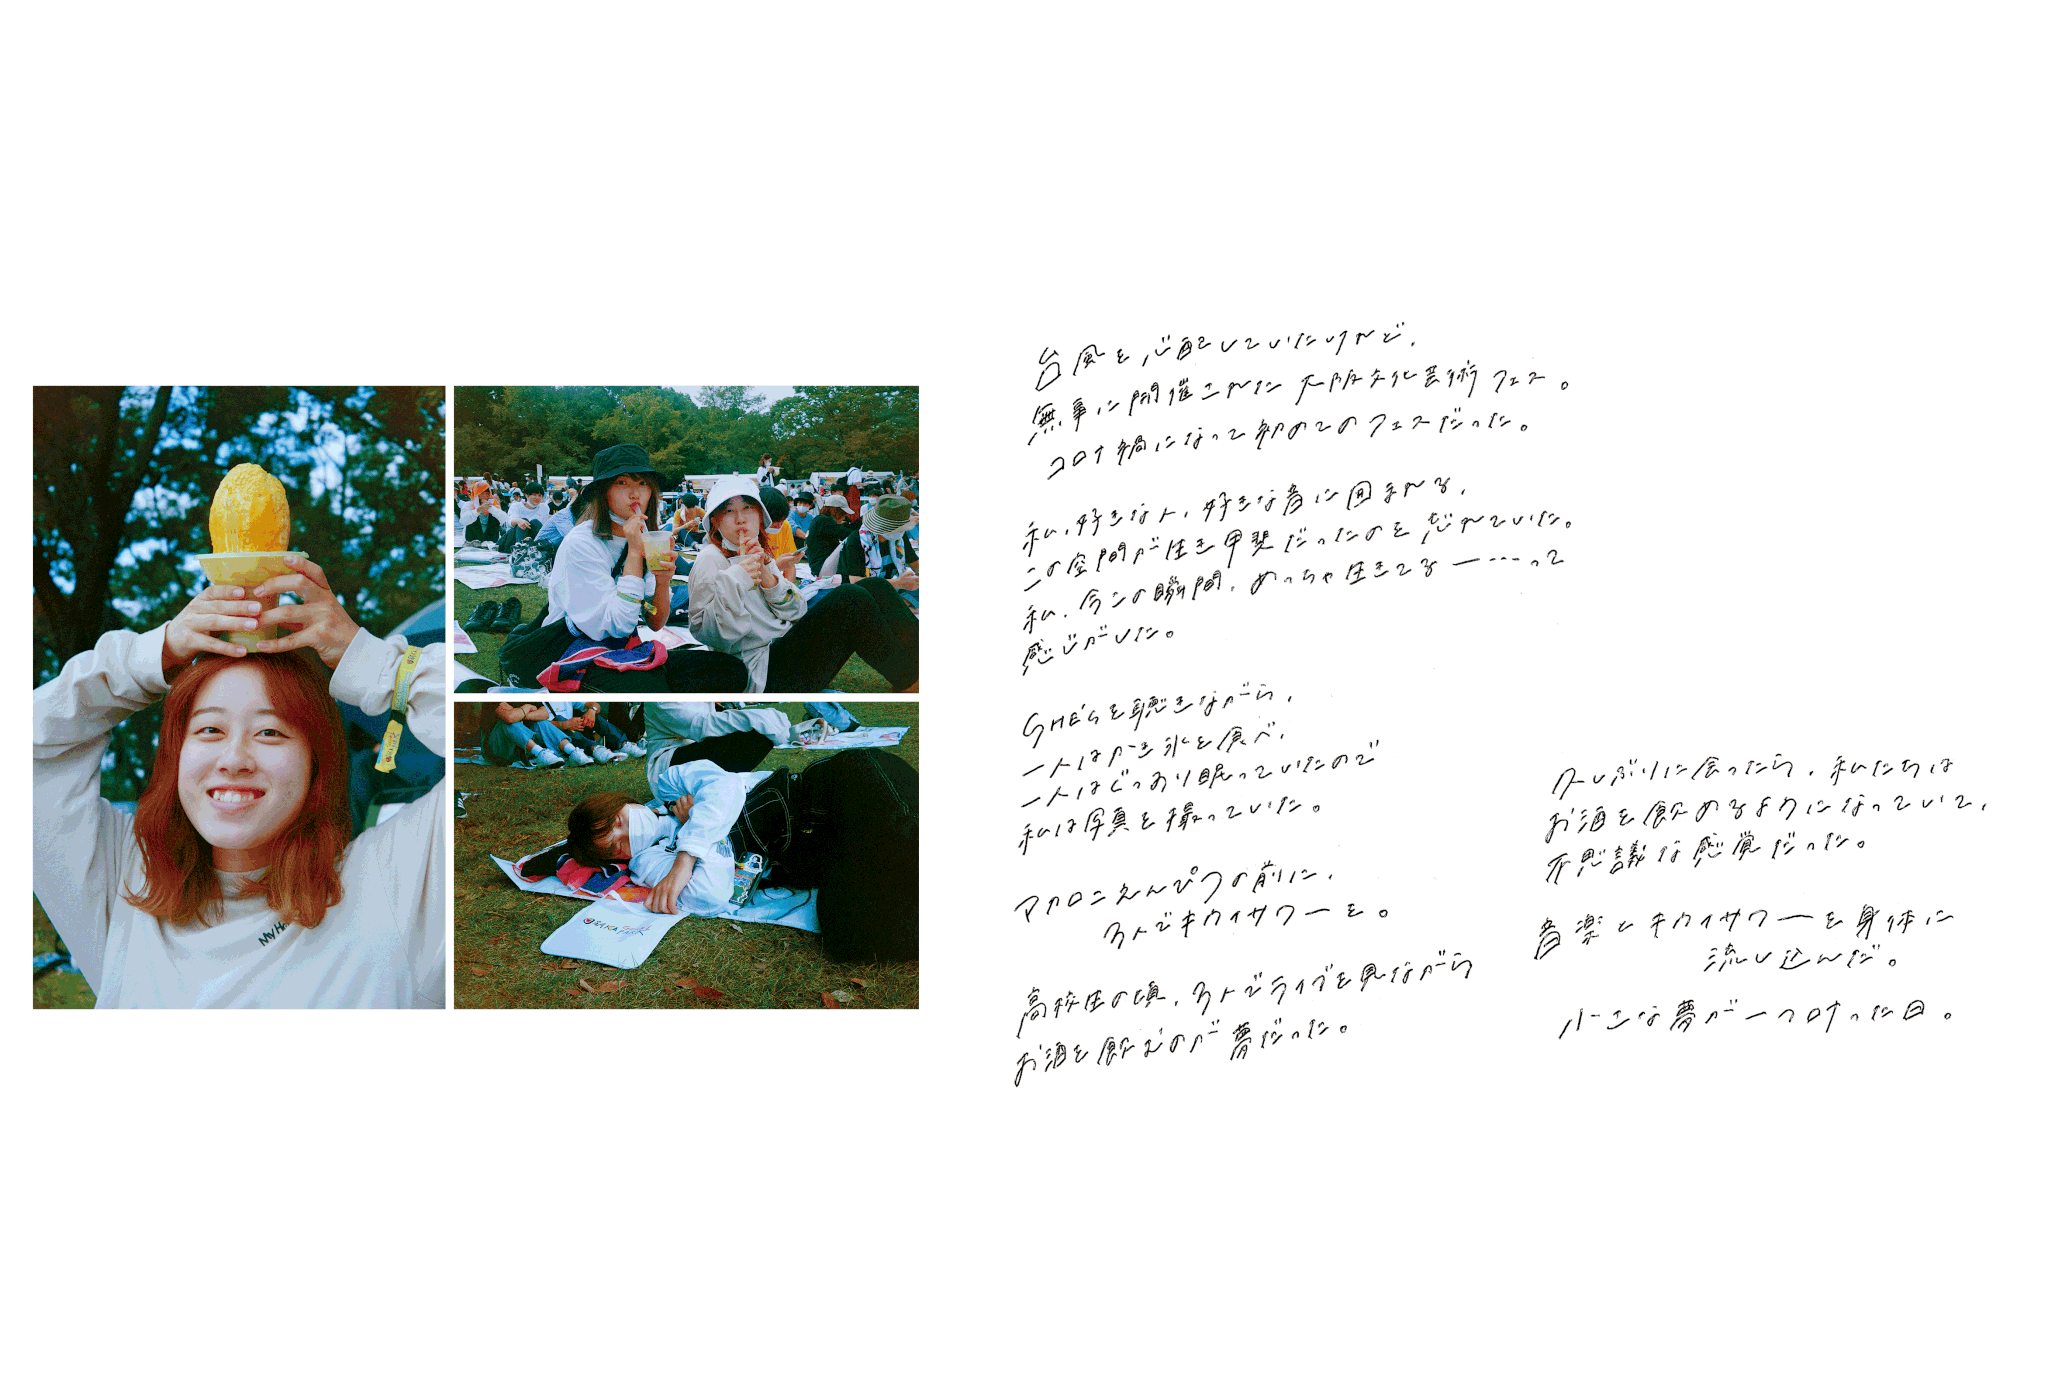 台風を心配していたけれど、
無事に開催された大阪文化芸術フェス。
コロナ禍になって初めてのフェスだった。
私、好きな人、好きな音に囲まれる、
この空間が生き甲斐だったのを忘れていた。
私、今この瞬間、めっちゃ生きてるー……って
感じがした。
SHE'Sを聴きながら、
一人はかき氷を食べ、
一人はぐっすり眠っていたので
私は写真を撮っていた。
マカロニえんぴつの前に、
3人でキウイサワーを。
高校生の頃、3人でライブを見ながら
お酒を飲むのが夢だった。
久しぶりに会ったら、私たちは
お酒を飲めるようになっていて、
不思議な感覚だった。
音楽とキウイサワーを身体に
流し込んだ。
小さな夢が一つ叶った日。
MY H